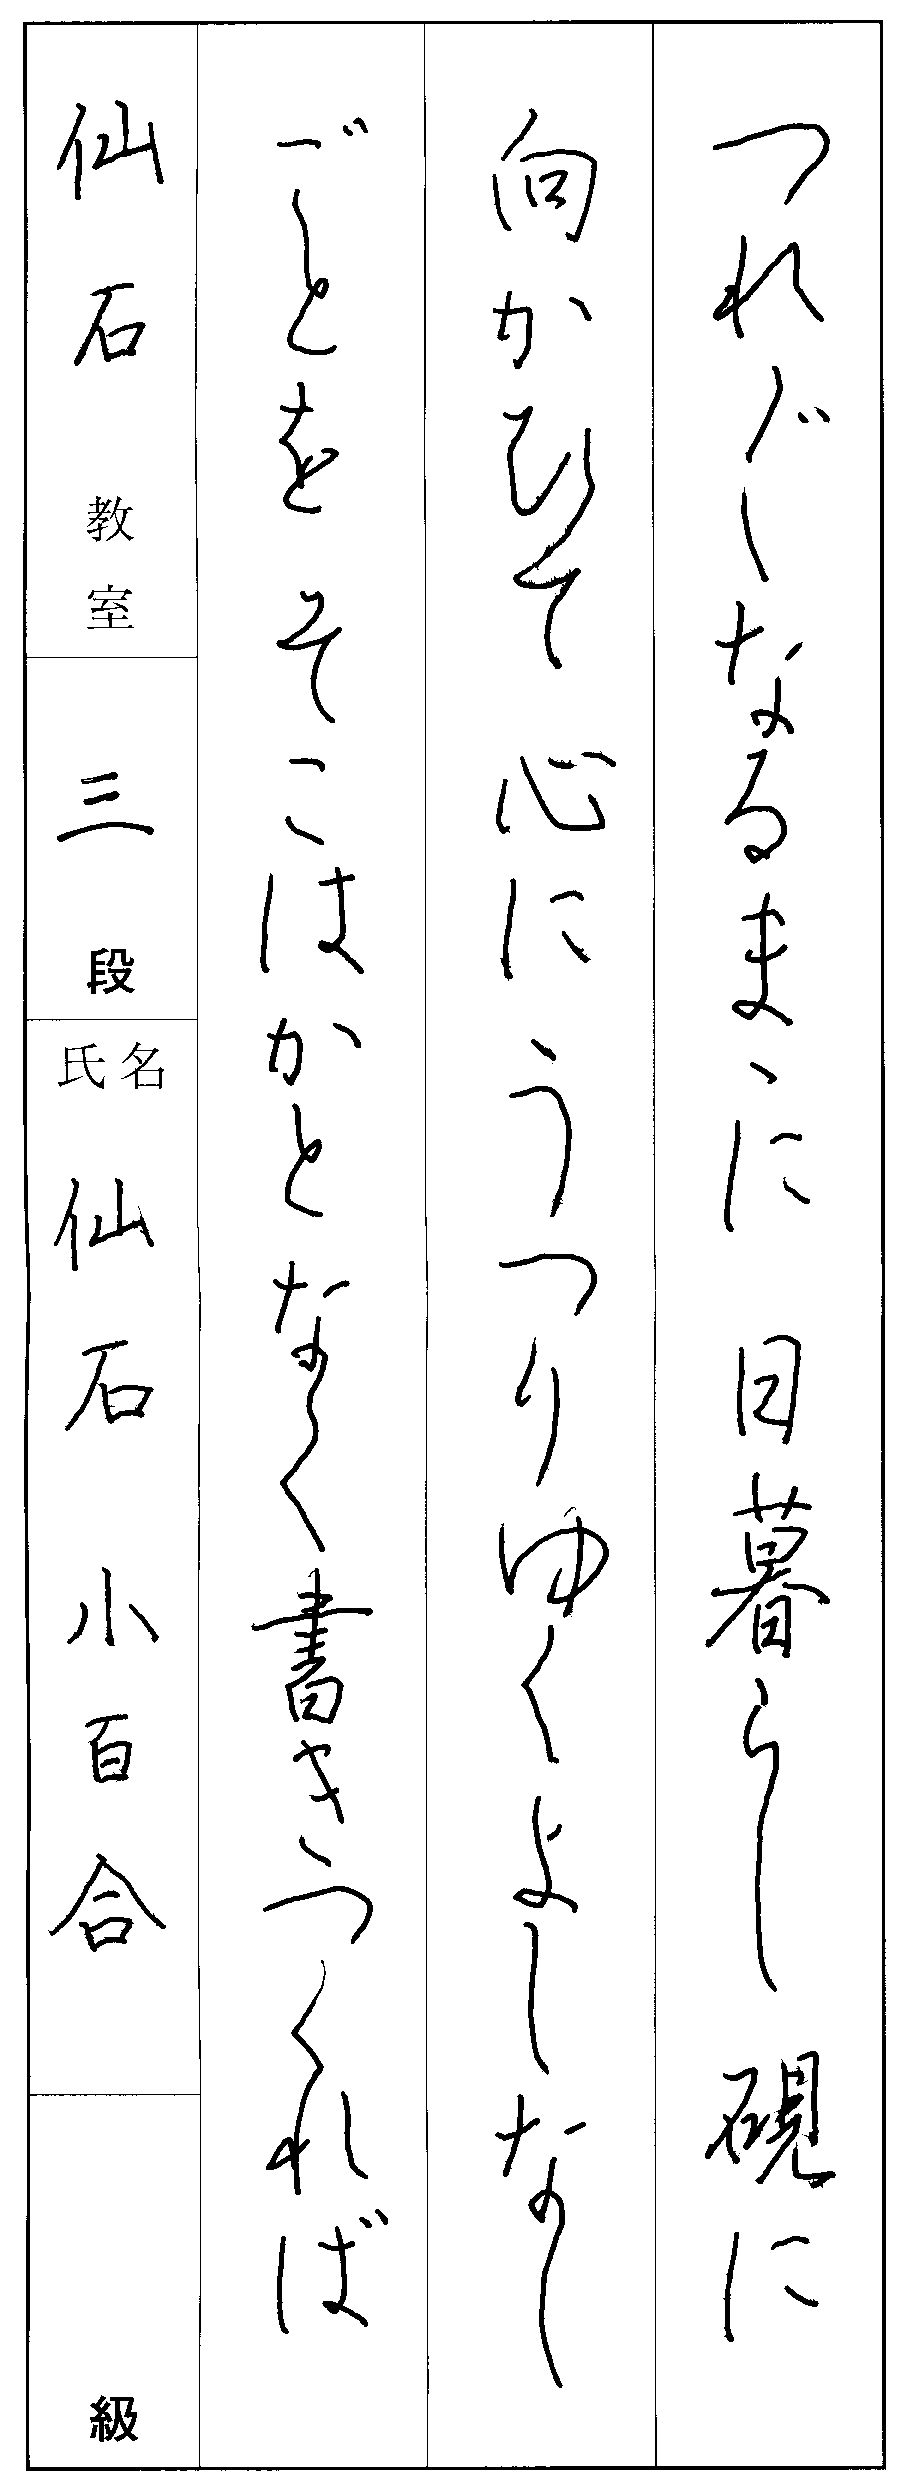 つれ〴〵なるまゝに 日暮らし 硯に
向かひて 心に うつりゆく よしなし
ごとを そこはかとなく書きつくれば
仙石 教室
三 段
氏名 仙石 小百合
級